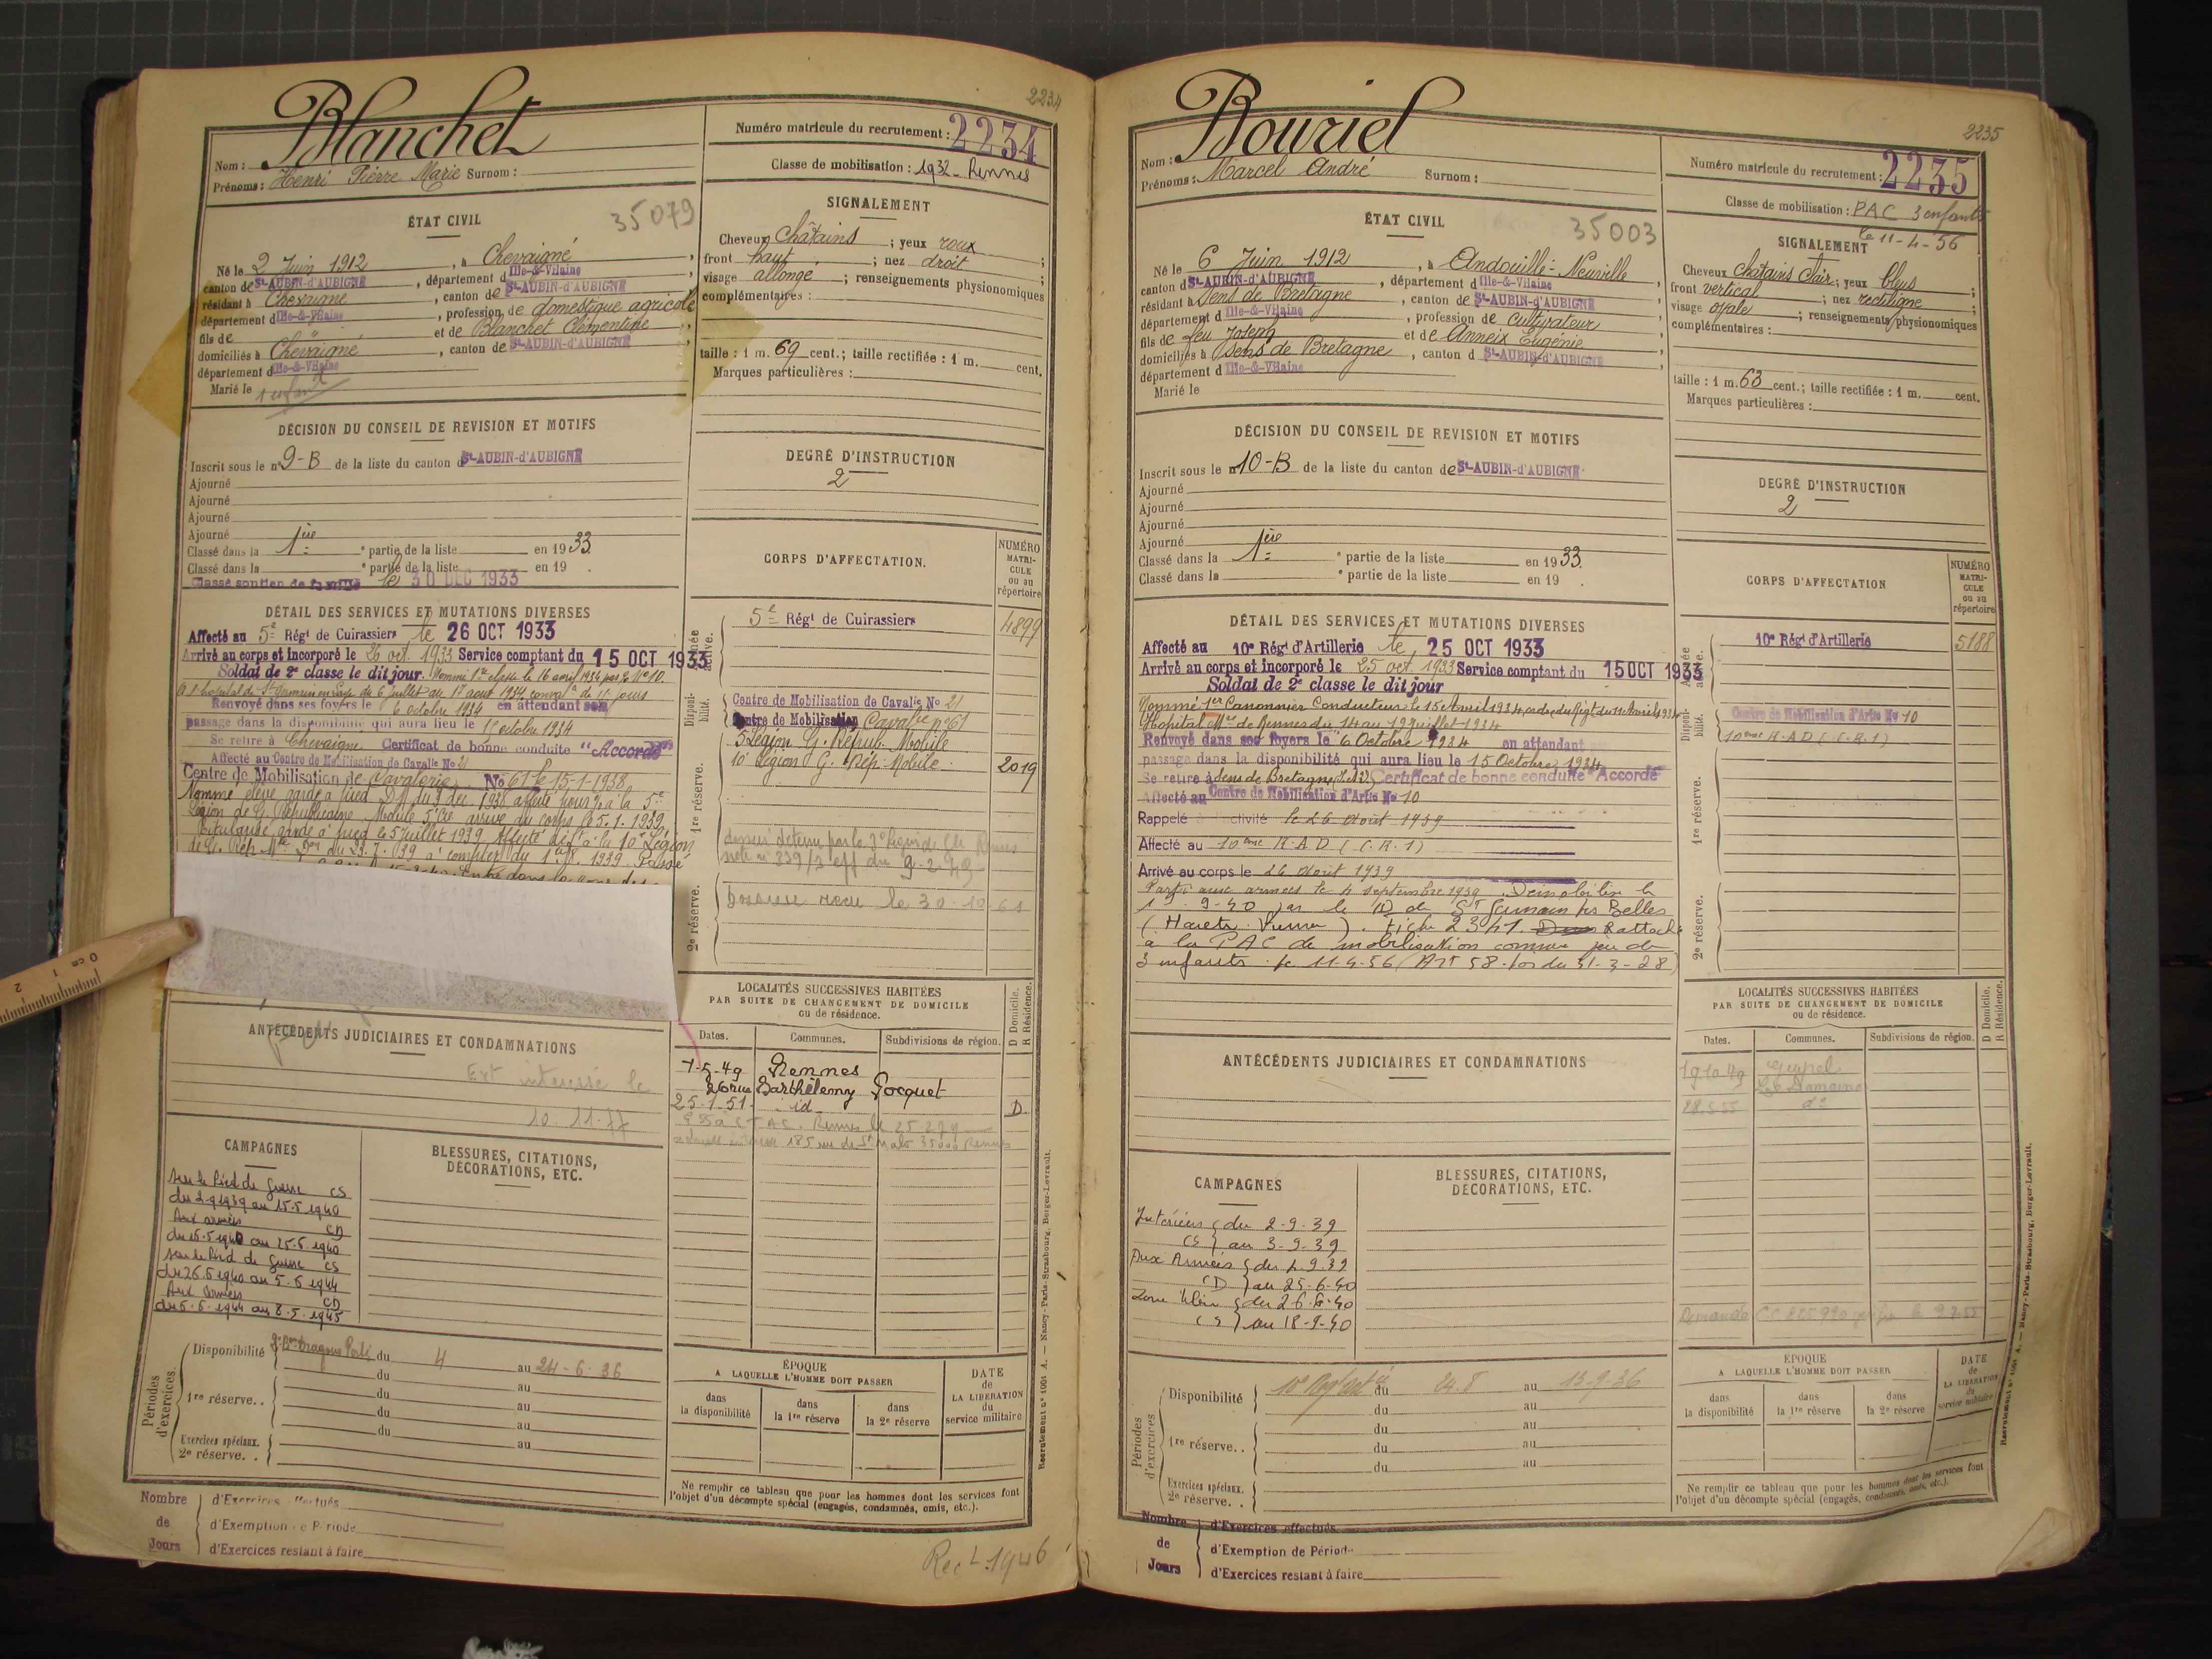 2234
Nom : Blanchet
Prénoms : Henri Pierre Marie Surnom :
Numéro matricule du recrutement : 2234
Classe de mobilisation : 1932 - Rennes
ÉTAT CIVIL
35079
Né le 2 Juin 1912, à Chevaigné,
canton de St-AUBIN-d'AUBIGNÉ, département d Ille-&-Vilaine
résidant à Chevaigné, canton de St-AUBIN-d'AUBIGNÉ
département d Ille-&-Vilaine, profession de domestique agricole
fils de et de Blanchet Clémentine,
domiciliés à Chevaigné, canton de St-AUBIN-d'AUBIGNÉ
département d Ille-&-Vilaine
Marié le 1 enfant
SIGNALEMENT
Cheveux Châtains ; yeux roux
front haut ; nez droit ;
visage allongé ; renseignements physionomiques
complémentaires :
taille : 1 m. 69 cent.; taille rectifiée : 1 m. cent.
Marques particulières :
DÉCISION DU CONSEIL DE REVISION ET MOTIFS
Inscrit sous le n° 9-B de la liste du canton d St-AUBIN-d'AUBIGNÉ
Ajourné
Ajourné
Ajourné
Ajourné
Classé dans la 1ère partie de la liste en 1933.
Classé dans la partie de la liste en 19 .
Classé soutien de famille le 30 DEC 1933
DEGRÉ D'INSTRUCTION
2
DÉTAIL DES SERVICES ET MUTATIONS DIVERSES
Affecté au 5e Régt de Cuirassiers le 26 OCT 1933
Arrivé au corps et incorporé le 26 oct. 1933 Service comptant du 15 OCT 1933
Soldat de 2e classe le dit jour. Nommé 1re classe le 16 avril 1934
Renvoyé dans ses foyers le 6 octobre 1934 en attendant son
passage dans la disponibilité qui aura lieu le 15 octobre 1934
Se retire à Chevaigné Certificat de bonne conduite "Accordé"
Affecté au Centre de Mobilisation de Cavalie No 21
Centre de Mobilisation de Cavalerie No 61 le 15-1-1938
Nommé élève garde à pied
Légion de G. Républicaine Mobile arrivé au corps le 5.1.1939
Titularisé garde à pied le 5 Juillet 1939 Affecté à la 10e Légion
CORPS D'AFFECTATION.
NUMÉRO MATRICULE ou au répertoire
Armée active.
5e Régt de Cuirassiers 4899
Disponibilité.
Centre de Mobilisation de Cavalie No 21
Centre de Mobilisation Cavalie n°61
1re réserve.
5 Légion G. Répub. Mobile
10e Légion G. Rép. Mobile. 2019
2e réserve.
Dossier reçu le 30.10.61
ANTÉCÉDENTS JUDICIAIRES ET CONDAMNATIONS
Ext intéressé le
10.11.77
LOCALITÉS SUCCESSIVES HABITÉES
PAR SUITE DE CHANGEMENT DE DOMICILE
ou de résidence.
D Domicile.
R Résidence.
Dates. Communes. Subdivisions de région.
7-5-49 Rennes
26 rue Barthélemy Pocquet
25-1-51 id D.
CAMPAGNES
sur le Pied de Guerre CS
du 2-9-1939 au 15.5.1940
Aux armées CD
du 16.5.1940 au 25.6.1940
sur le Pied de Guerre CS
du 26.6.1940 au 5.6.1944
Aux armées CD
du 6.6.1944 au 8.5.1945
BLESSURES, CITATIONS,
DÉCORATIONS, ETC.
Périodes d'exercices.
Disponibilité du 4 au 24-6-36
du au
1re réserve. . du au
du au
du au
Exercices spéciaux.
2e réserve. . au
ÉPOQUE
A LAQUELLE L'HOMME DOIT PASSER
dans la disponibilité
dans la 1re réserve
dans la 2e réserve
DATE de LA LIBÉRATION du service militaire
Ne remplir ce tableau que pour les hommes dont les services font
l'objet d'un décompte spécial (engagés, condamnés, omis, etc.).
Recrutement n° 1001 A. — Nancy-Paris-Strasbourg, Berger-Levrault.
Nombre de Jours
d'Exercices effectués
d'Exemption de Période
d'Exercices restant à faire
Rect 1946
0 cm 1 2
2235
Nom : Bouriel
Prénoms : Marcel André Surnom :
Numéro matricule du recrutement : 2235
Classe de mobilisation : PAC 3 enfants
le 11-4-56
ÉTAT CIVIL
35003
Né le 6 Juin 1912, à Andouillé-Neuville,
canton d St-AUBIN-d'AUBIGNÉ, département d Ille-&-Vilaine
résidant à Sens de Bretagne, canton de St-AUBIN-d'AUBIGNÉ
département d Ille-&-Vilaine, profession de cultivateur
fils de feu Joseph et de Anneix Eugénie,
domiciliés à Sens de Bretagne, canton d St-AUBIN-d'AUBIGNÉ
département d Ille-&-Vilaine
Marié le
SIGNALEMENT
Cheveux Châtains clair; yeux bleus ;
front vertical ; nez rectiligne ;
visage ovale ; renseignements physionomiques
complémentaires :
taille : 1 m. 63 cent.; taille rectifiée : 1 m. cent.
Marques particulières :
DÉCISION DU CONSEIL DE REVISION ET MOTIFS
Inscrit sous le n° 10-B de la liste du canton de St-AUBIN-d'AUBIGNÉ
Ajourné
Ajourné
Ajourné
Ajourné
Classé dans la 1ère partie de la liste en 1933.
Classé dans la partie de la liste en 19 .
DEGRÉ D'INSTRUCTION
2
DÉTAIL DES SERVICES ET MUTATIONS DIVERSES
Affecté au 10e Régt d'Artillerie le 25 OCT 1933
Arrivé au corps et incorporé le 25 oct. 1933 Service comptant du 15 OCT 1933
Soldat de 2e classe le dit jour
Nommé 1er Canonnier Conducteur le 15 Avril 1934, ordre du Régt du 11 Avril 1934
Hôpital Mre de Rennes du 14 au 19 juillet 1934
Renvoyé dans ses foyers le 6 Octobre 1934 en attendant
passage dans la disponibilité qui aura lieu le 15 Octobre 1934
Se retire à Sens de Bretagne (I.&V.) Certificat de bonne conduite "Accordé"
Affecté au Centre de Mobilisation d'Artie No 10
Rappelé à l'activité le 26 Août 1939
Affecté au 10ème R.A.D (C.R.1)
Arrivé au corps le 26 Août 1939
Parti aux armées le 4 septembre 1939. Démobilisé le
19.9-40 par le CD de St Germain les Belles
(Haute Vienne). Fiche 2341. Rattaché
à la PAC de mobilisation comme père de
3 enfants. le 11-4-56 (Art 58. loi du 31-3-28)
CORPS D'AFFECTATION
NUMÉRO MATRICULE ou au répertoire
Armée active.
10e Régt d'Artillerie 5188
Disponibilité.
Centre de Mobilisation d'Artie No 10
10ème R.A.D (C.R.1)
1re réserve.
2e réserve.
ANTÉCÉDENTS JUDICIAIRES ET CONDAMNATIONS
LOCALITÉS SUCCESSIVES HABITÉES
PAR SUITE DE CHANGEMENT DE DOMICILE
ou de résidence.
D Domicile.
R Résidence.
Dates. Communes. Subdivisions de région.
19.10.49 Guipel
Le Domaine
28.5.55 d°
CAMPAGNES
Intérieur du 2-9-39
CS au 3-9-39
Aux Armées du 4-9-39
CD au 25-6-40
du 26-6-40
CS au 18-9-40
BLESSURES, CITATIONS,
DÉCORATIONS, ETC.
Périodes d'exercices
Disponibilité 10e Regt Artie du 24.8 au 13-9-36
du au
1re réserve. . du au
du au
du au
Exercices spéciaux.
2e réserve. .
ÉPOQUE
A LAQUELLE L'HOMME DOIT PASSER
dans la disponibilité
dans la 1re réserve
dans la 2e réserve
DATE de LA LIBÉRATION du service militaire
Ne remplir ce tableau que pour les hommes dont les services font
l'objet d'un décompte spécial (engagés, condamnés, omis, etc.).
Recrutement n° 1001 A. — Nancy-Paris-Strasbourg, Berger-Levrault.
Nombre de Jours
d'Exercices effectués
d'Exemption de Période
d'Exercices restant à faire